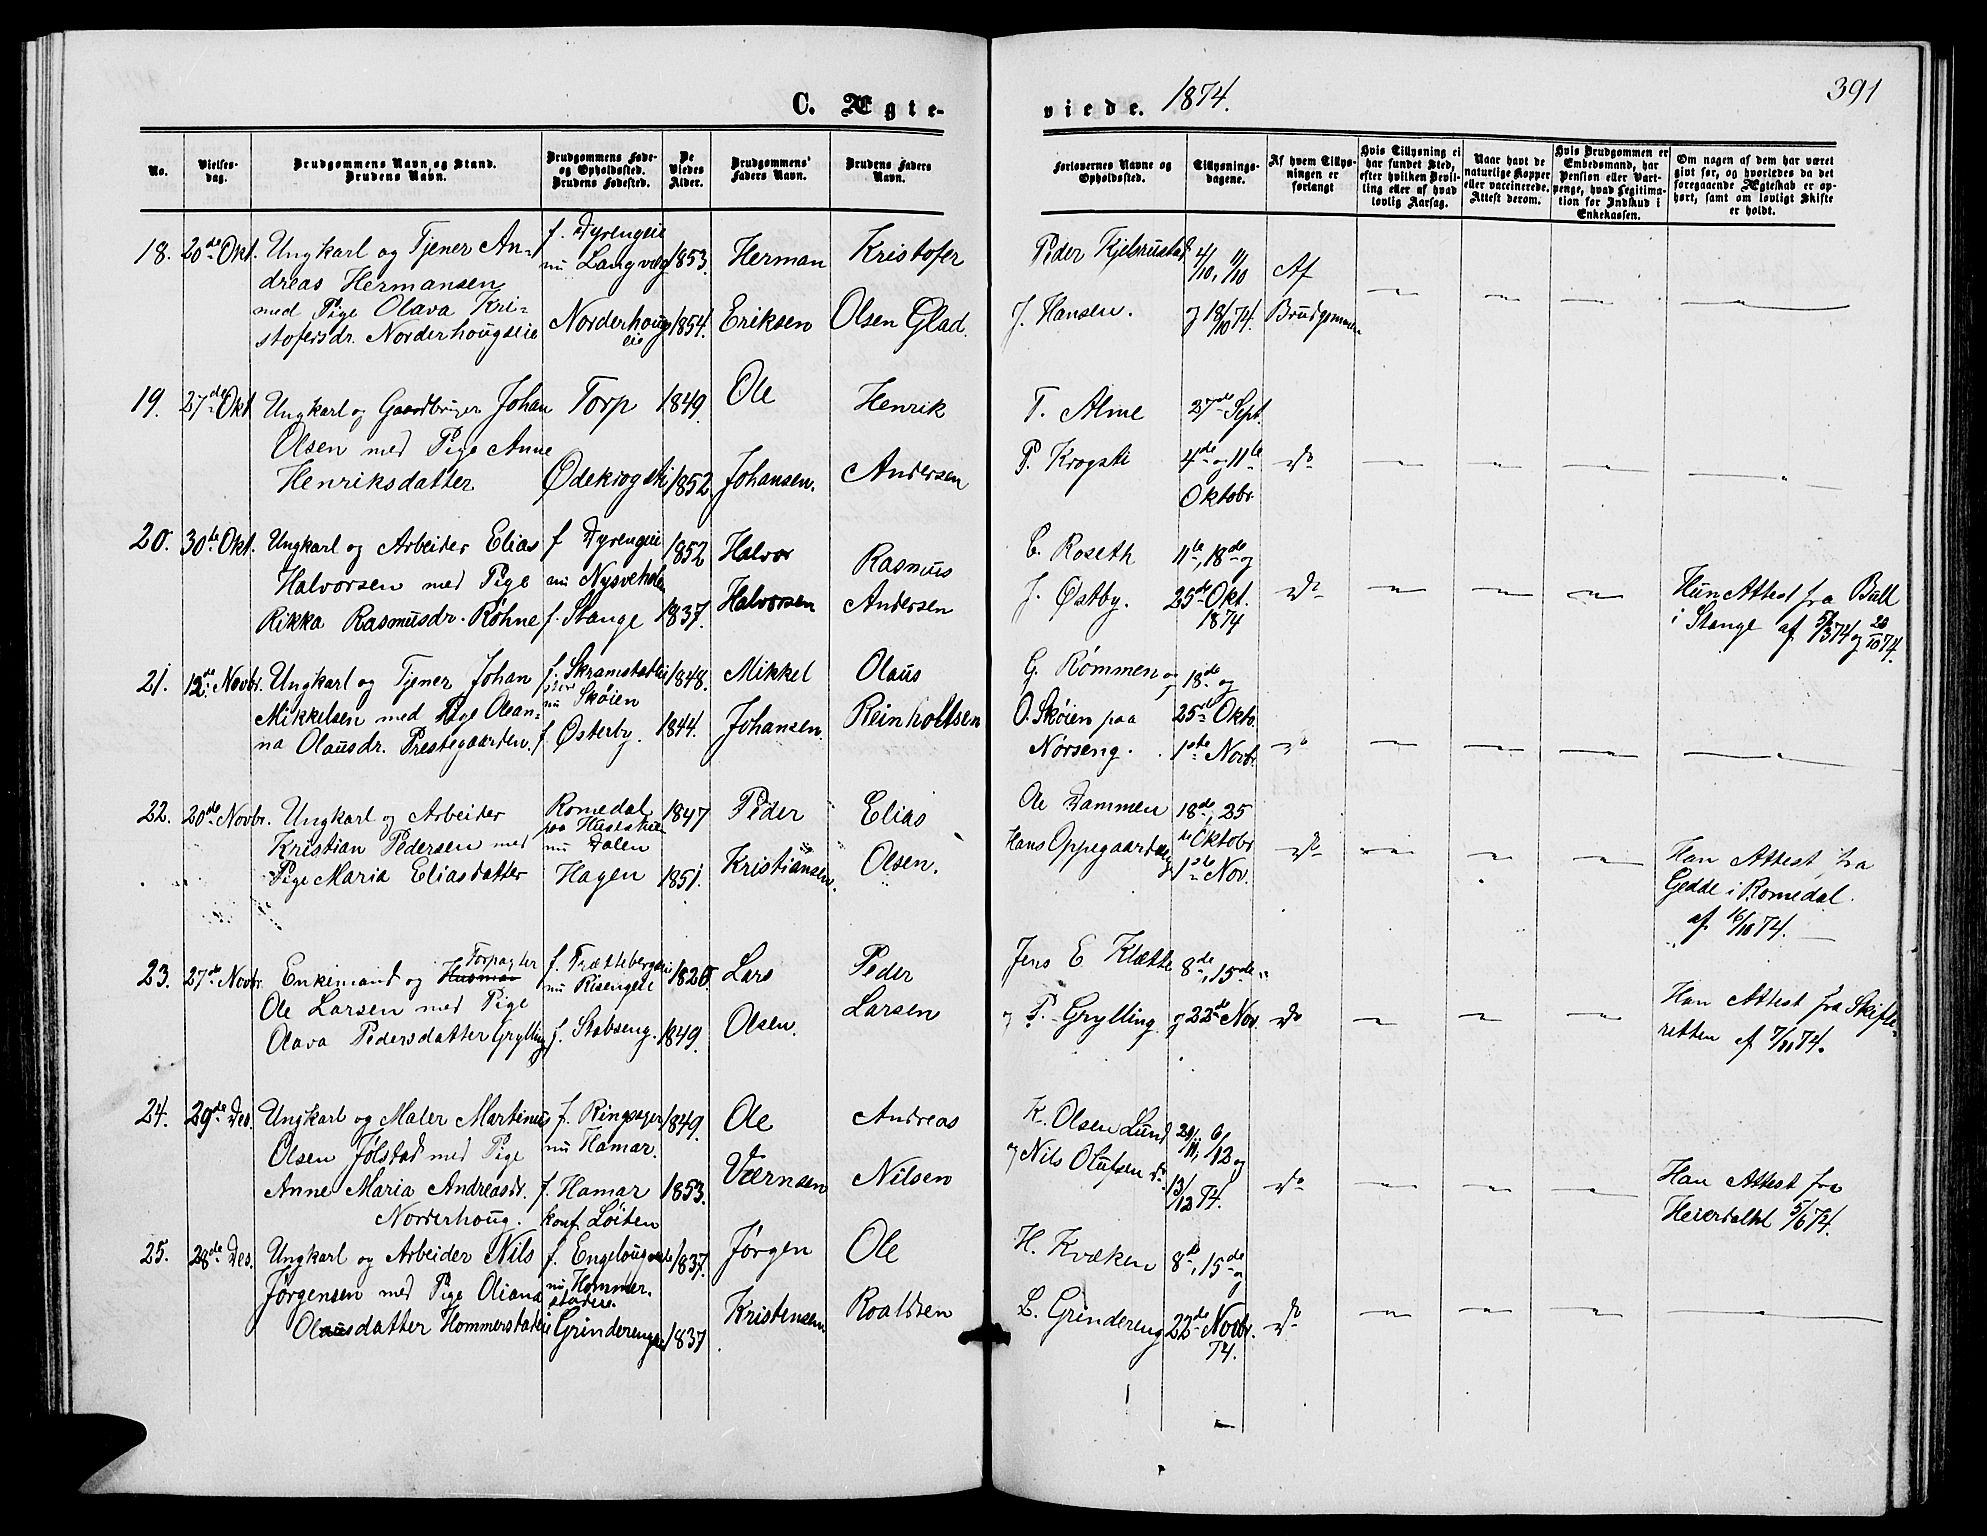 C. Ægteviede. 1874.
391
No.
Vielsesdag.
Brudgommens Navn og Stand.
Brudens Navn.
Brudgommens Føde-
og Opholdssted.
Brudens Fødested.
De
Viedes
Alder.
Brudgommens
Faders Navn.
Brudens Faders
Navn.
Forlovernes Navne og
Opholdssted.
Tillysnings-
dagene.
Af hvem Tillys-
ningen er
forlangt
Hvis Tillysning ei
har fundet Sted,
efter hvilken Bevil-
ling eller af hvad
lovlig Aarsag.
Naar havt de
naturlige Kopper
eller vaccinerede.
Attest derom.
Hvis Brudgommen er
Embedsmand, har
Pension eller Vart-
penge, hvad Legitima-
tion for Indskud i
Enkekassen.
Om nogen af dem har været
gift før, og hvorledes da det
foregaaende Ægteskab er op-
hørt, samt om lovligt Skifte
er holdt.
18. 20de Okt. Ungkarl og Tjener An-
dreas Hermansen
med Pige Olava Kri-
stofersdr. Norderhougseie
f. Dyrengeie
nu Langvæg 1853.
Norderhoug
eie 1854.
Herman
Eriksen
Kristofer
Olsen Glad.
Peder Kjelsrustad
J. Hansen.
4/10, 11/10
og 18/10 74.
Af
Brudgommen
19. 27de Okt. Ungkarl og Gaardbruger Johan
Olsen med Pige Anne
Henriksdatter
Torp 1849.
Ødekrogsti 1852
Ole
Johansen.
Henrik
Andersen
T. Alme
P. Krogsti
27de Sept.
4de og 11te
Oktobr.
Do
20. 30te Okt. Ungkarl og Arbeider Elias
Halvorsen med Pige
Rikka Rasmusdr. Røhne
f Dyrengeie
nu Nysvehole 1852
f. Stange 1837.
Halvor
Halvorsen
Rasmus
Andersen
C. Roseth
J. Østby.
11te, 18de og
25de Okt.
1874
Do
Hun Attest fra Bull
i Stange af 5/3 74 og 20/10 74.
21. 12te Novbr. Ungkarl og Tjener Johan
Mikkelsen med Pige Olean-
na Olausdr. Prestegaarden.
f. Skramstadeie
nu Skøien 1848.
f. Østerby. 1844.
Mikkel
Johansen.
Olaus
Reinholtsen
G. Rømmen og
O. Skøien paa
Nørseng.
18de og
25de Oktb.
1ste Novbr.
Do
22. 20de Novbr. Ungkarl og Arbeider
Kristian Pedersen med
Pige Maria Eliasdatter
Romedal
nu Dalen 1847
Hagen 1851.
Peder
Kristiansen.
Elias
Olsen.
Ole Dammen
Hans Oppegaard
18de, 25
de Oktobr
1ste Nov.
Do
Han Attest fra
Gedde i Romedal.
af 16/10 74.
23. 27de Novbr. Enkemand og Husman Forpagter
Ole Larsen med Pige
Olava Pedersdatter Grylling
f. Trættebergeie
nu Risengeie 1820.
f. Stobseng. 1849.
Lars
Olsen.
Peder
Larsen
Jens E. Klætte
og P. Grylling.
8de, 15de
og 22de Nov.
Do
Han Attest fra Skifte-
retten af 7/11 74.
24. 29de Des. Ungkarl og Maler Martinus
Olsen Jølstad med Pige
Anne Maria Andreasdr.
Norderhoug.
f. Ringsager
nu Hamar. 1849.
f. Hamar 1853.
konf. Løiten
Ole
Værnsen
Andreas
Nilsen
K. Olsen Lund
og Nils Olufsen do.
29/11, 6/12 og
13/12 74.
Do
Han Attest fra
Heierdahl 5/6 74.
25. 28de Des. Ungkarl og Arbeider Nils
Jørgensen med Pige Oliana
Olausdatter Hommerstadeie
f. Engelougeie
nu Hommer-
stadeie. 1837.
Grinderengeie 1837.
Jørgen
Kristensen.
Ole
Roaldsen
H. Kvæken
L. Grindereng
8de, 15de
og
22de Novbr.
74.
Do